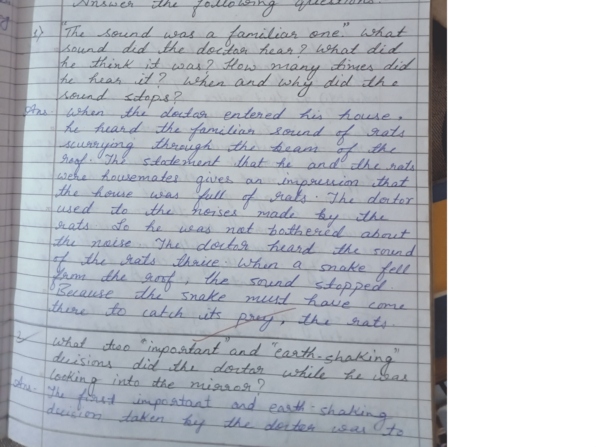 Answer the following questions.
1) "The sound was a familiar one." What
sound did the doctor hear? What did
he think it was? How many times did
he hear it? When and why did the
sound stops?
Ans. When the doctor entered his house,
he heard the familiar sound of rats
scurrying through the beam of the
roof. The statement that he and the rats
were housemates gives an impression that
the house was full of rats. The doctor
used to the noises made by the
rats so he was not bothered about
the noise. The doctor heard the sound
of the rats thrice. When a snake fell
from the roof, the sound stopped.
Because the snake must have come
there to catch its prey, the rats.
2 What two "important" and "earth-shaking"
decisions did the doctor while he was
looking into the mirror?
Ans. The first important and earth-shaking
decision taken by the doctor was to